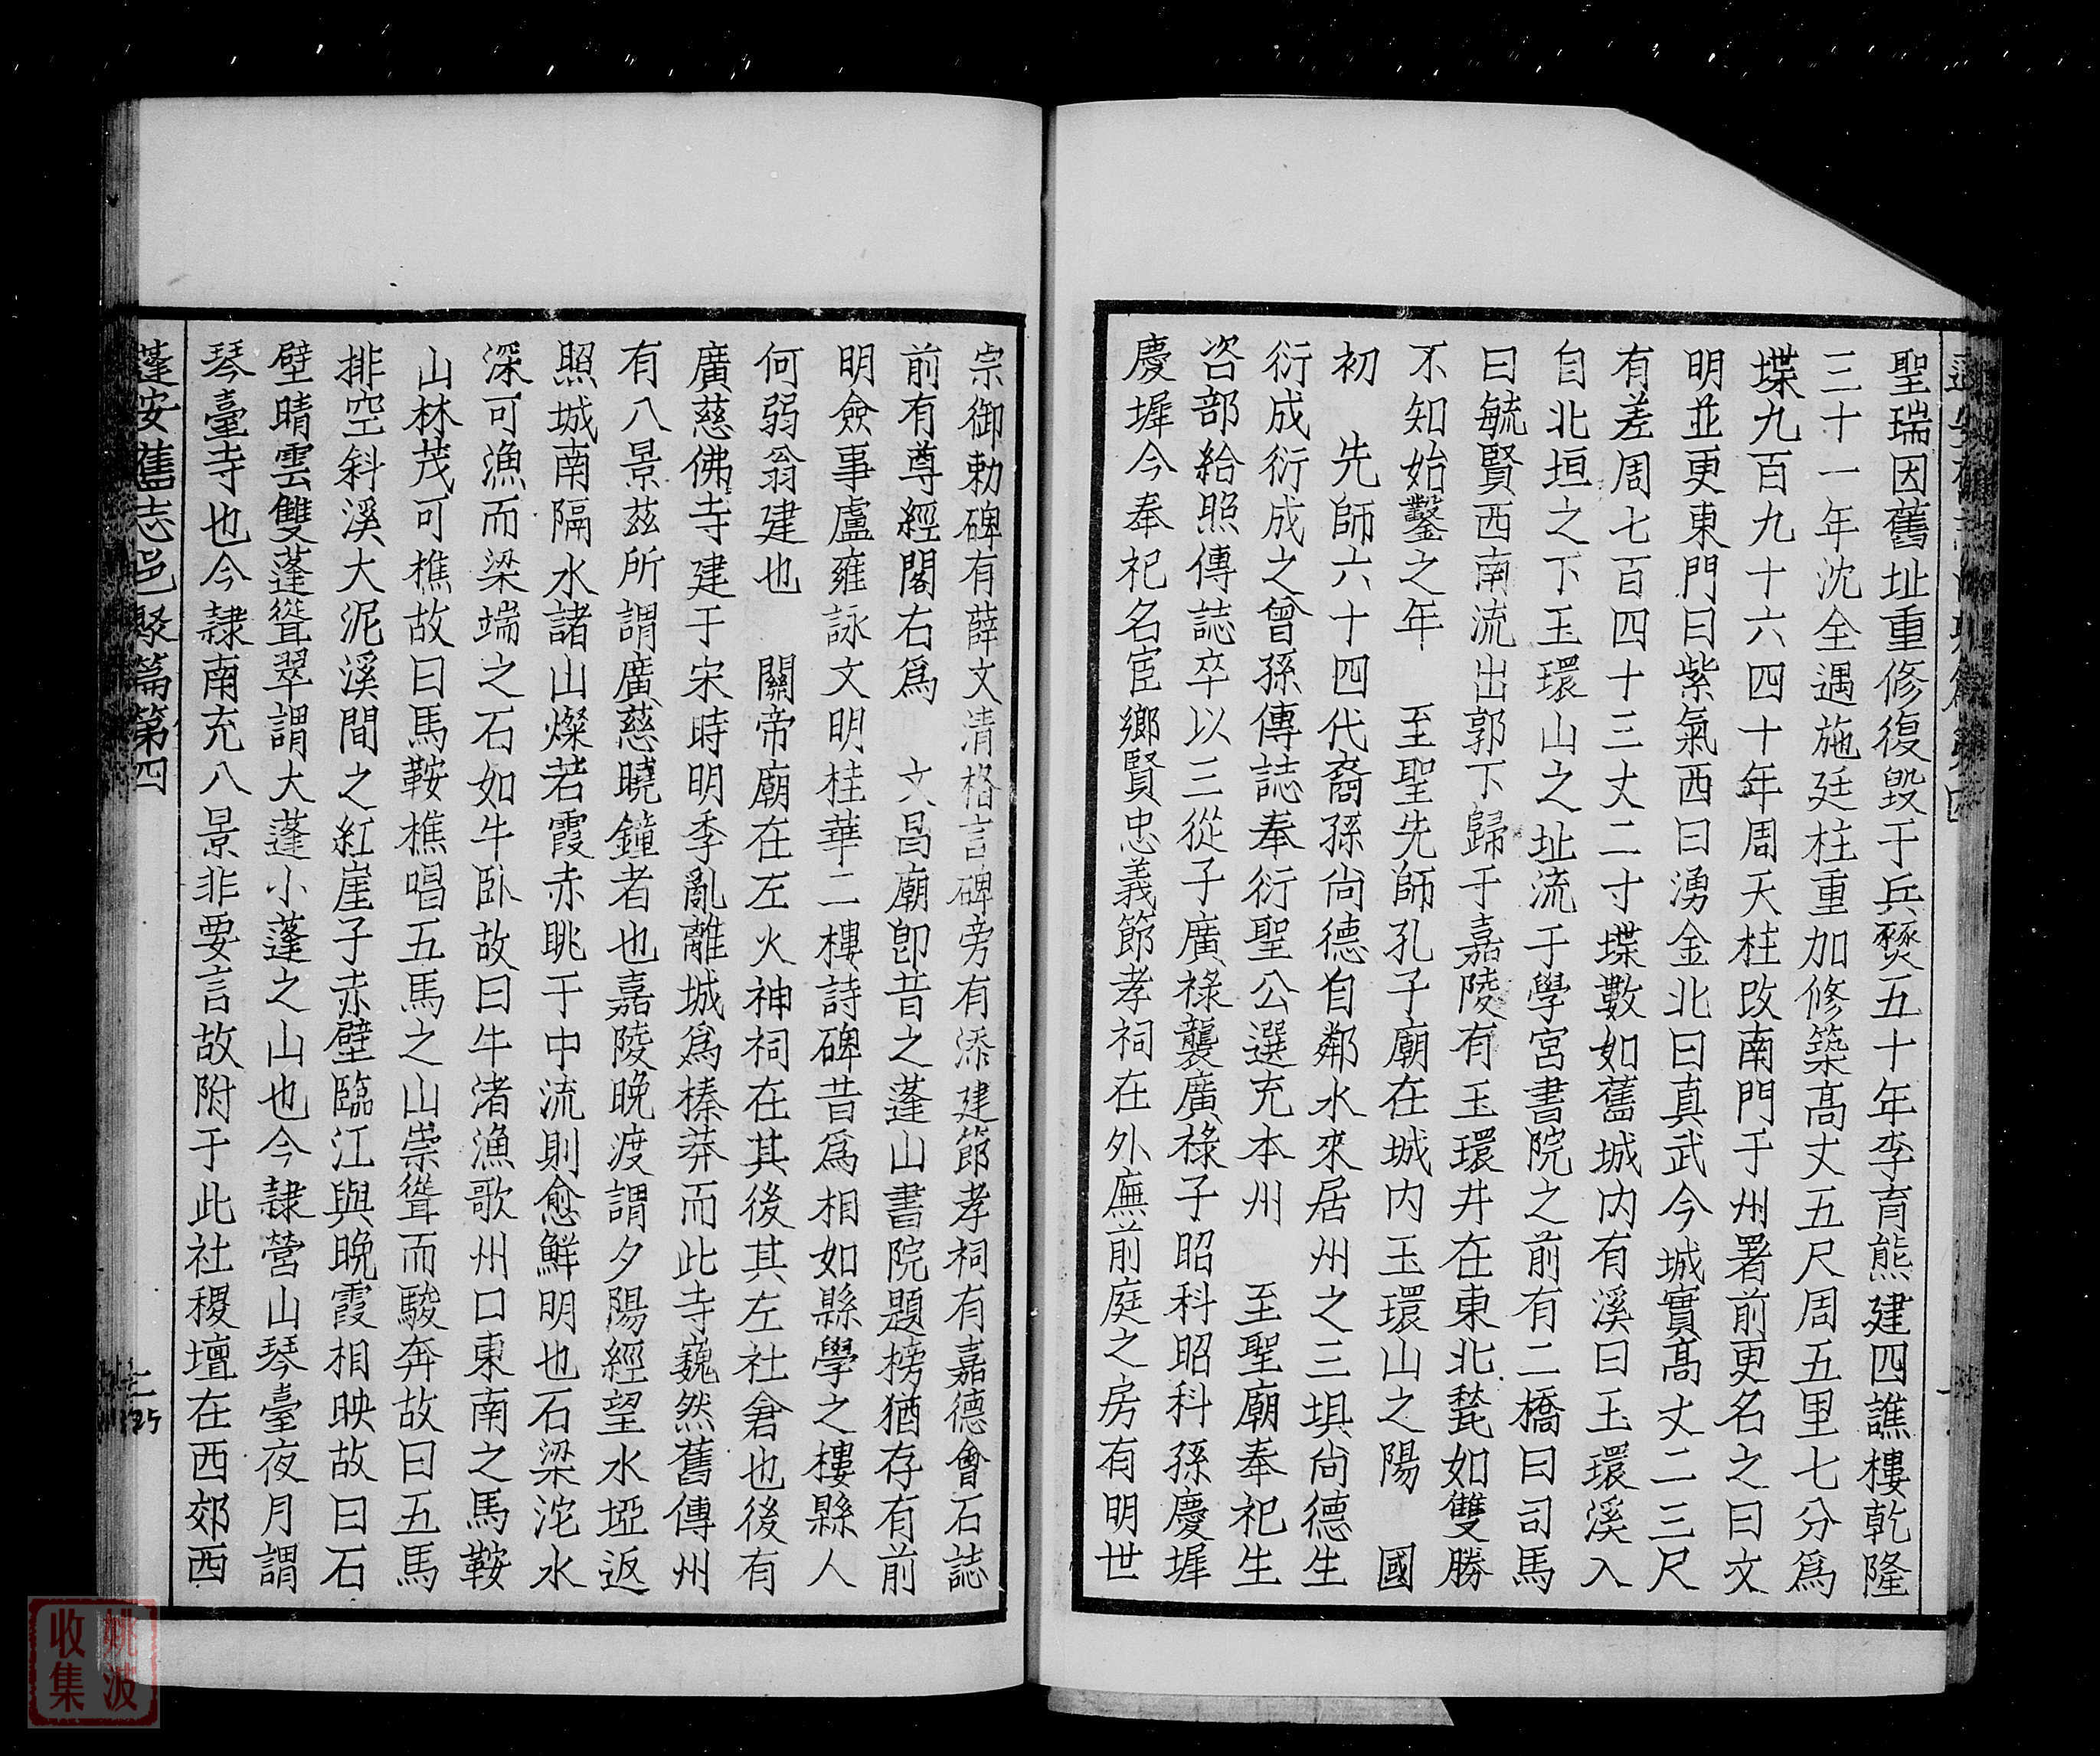 聖瑞因舊址重修復毀于兵燹五十年李育熊建四譙樓乾隆
三十一年沈全遇施廷柱重加修築高丈五尺周五里七分爲
堞九百九十六四十年周天柱改南門于州署前更名之曰文
明並更東門曰紫氣西曰湧金北曰真武今城實高丈二三尺
有差周七百四十三丈二寸堞數如舊城内有溪曰玉環溪入
自北垣之下玉環山之址流于學宮書院之前有二橋曰司馬
曰毓賢西南流出郭下歸于嘉陵有玉環井在東北甃如雙勝
不知始鑿之年　至聖先師孔子廟在城内玉環山之陽　國
初　先師六十四代裔孫尚德自鄰水來居州之三埧尚德生
衍成衍成之曾孫傳誌奉衍聖公選充本州　至聖廟奉祀生
咨部給照傳誌卒以三從子廣祿襲廣祿子昭科昭科孫慶墀
慶墀今奉祀名宦鄉賢忠義節孝祠在外廡前庭之房有明世
宗御勅碑有薛文清格言碑旁有添建節孝祠有嘉德會石誌
前有尊經閣右爲　文昌廟卽昔之蓬山書院題榜猶存有前
明僉事盧雍詠文明桂華二樓詩碑昔爲相如縣學之樓縣人
何弱翁建也　關帝廟在左火神祠在其後其左社倉也後有
廣慈佛寺建于宋時明季亂離城爲榛莽而此寺巍然舊傳州
有八景茲所謂廣慈曉鐘者也嘉陵晚渡謂夕陽經望水埡返
照城南隔水諸山燦若霞赤眺于中流則愈鮮明也石梁沱水
深可漁而梁端之石如牛卧故曰牛渚漁歌州口東南之馬鞍
山林茂可樵故曰馬鞍樵唱五馬之山崇聳而駿奔故曰五馬
排空斜溪大泥溪間之紅崖子赤壁臨江與晚霞相映故曰石
壁晴雲雙蓬聳翠謂大蓬小蓬之山也今隷營山琴臺夜月謂
琴臺寺也今隷南充八景非要言故附于此社稷壇在西郊西
蓬安舊志邑聚篇第四
姚波
收集